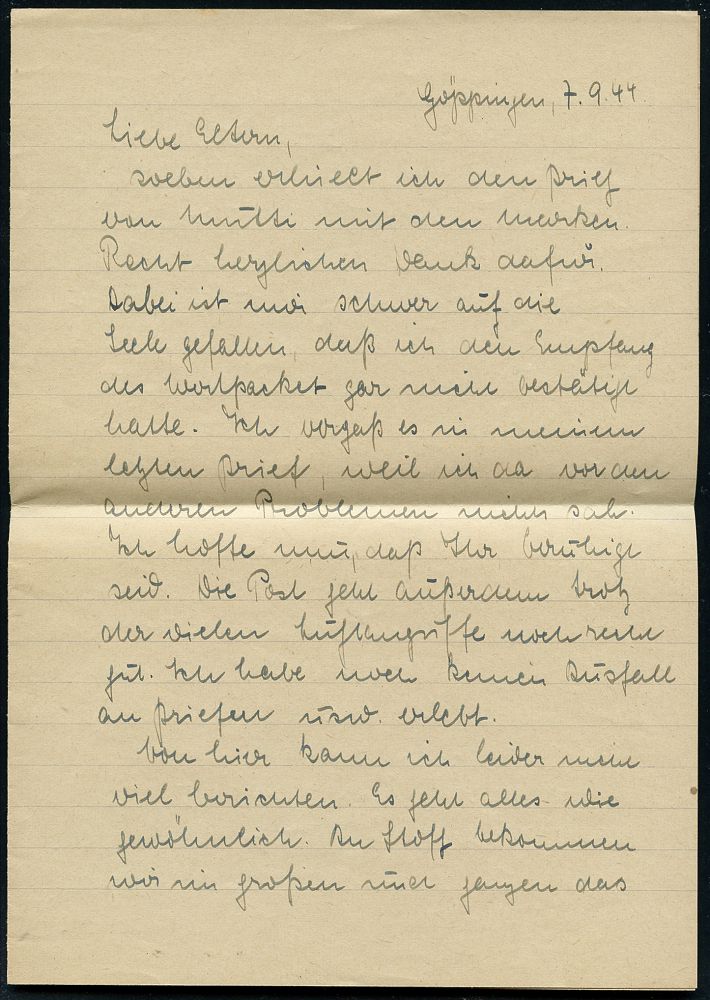 Göppingen, 7.9.44.
Liebe Eltern,
soeben erhielt ich den Brief
von Mutti mit den Marken.
Recht herzlichen Dank dafür.
Dabei ist mir schwer auf die
Seele gefallen, daß ich den Empfang
des gar nicht bestätigt
hatte. Ich vergaß es in meinem
letzten Brief, weil ich da vor den
anderen Problemen nichts sah.
Ich hoffe nun, daß Ihr beruhigt
seid. Die Post geht außerdem trotz
der vielen Luftangriffe noch recht
gut. Ich habe noch keinen Ausfall
an Briefen usw. erlebt.
Von hier kann ich leider nicht
viel berichten. Es geht alles wie
gewöhnlich. An Stoff bekommen
wir im großen und ganzen das